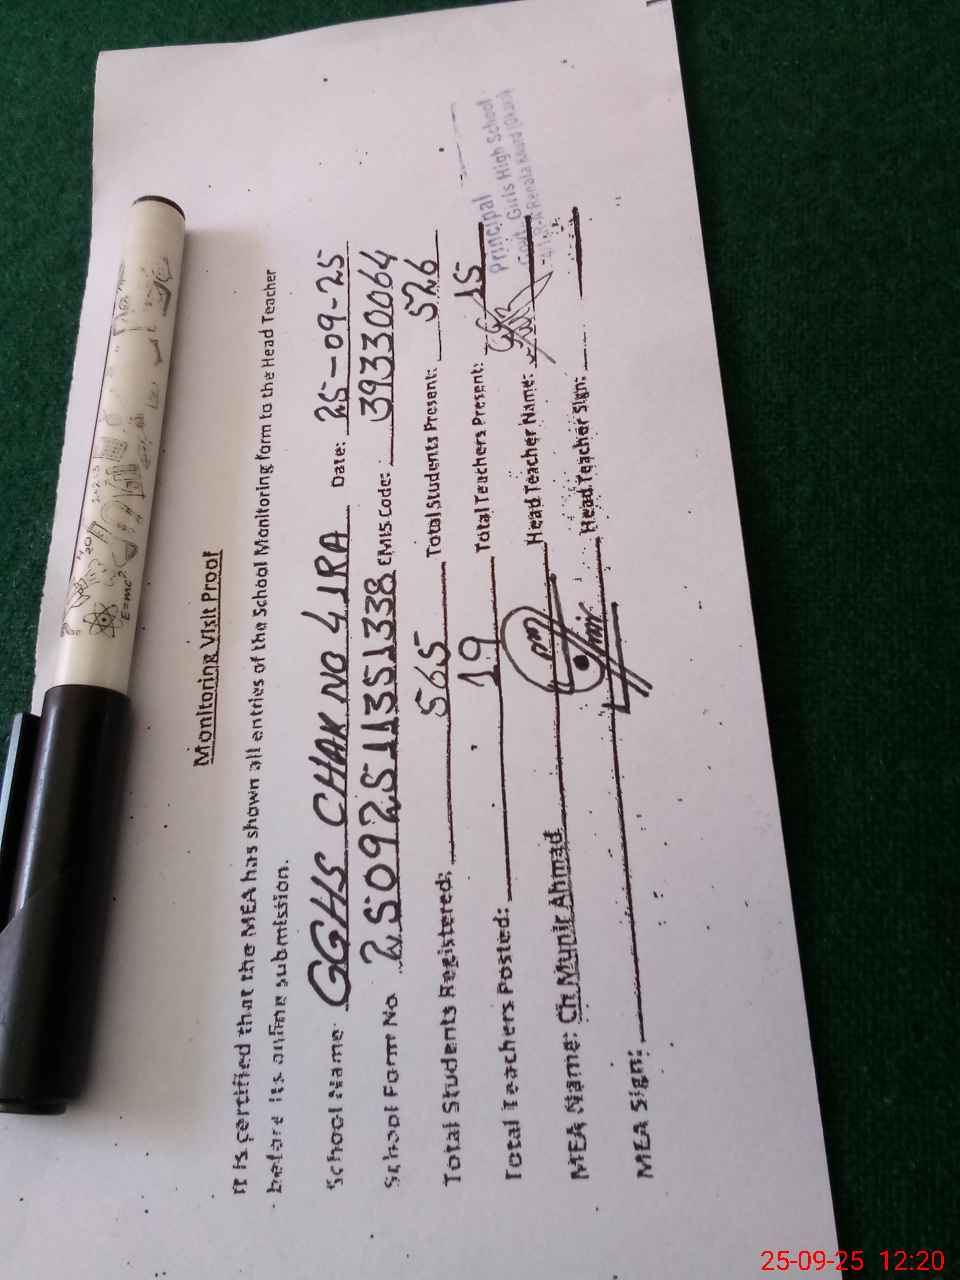 Monitoring Visit Proof
It is certified that the MEA has shown all entries of the School Monitoring form to the Head Teacher
before its online submission.
School Name: GGHS CHAK NO 4 1RA Date: 25-09-25
School Form No. 25092511351338 EMIS Code: 39330064
Total Students Registered: 565 Total Students Present: 526
Total Teachers Posted: 19 Total Teachers Present: 15
MEA Name: Ch Munir Ahmad Head Teacher Name:
MEA Sign: Head Teacher Sign:
Principal
Govt. Girls High School
Renala Khurd (Okara)
E=mc²
25-09-25 12:20